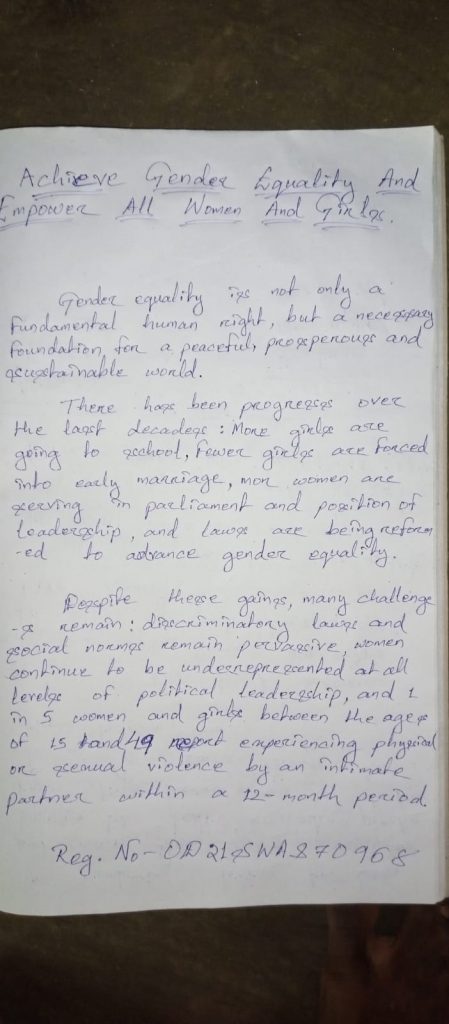 Achieve Gender Equality And
Empower All Women And Girls.
Gender equality is not only a
Fundamental human right, but a necessary
foundation, for a peaceful, prosperous and
sustainable world.
There has been progress over
the last decades: More girls are
going to school, Fewer girls are forced
into early marriage, mor women are
serving in parliament and position of
leadership, and laws are being reform
-ed to advance gender equality.
Despite these gains, many challenge
-s remain: discriminatory laws and
social norms remain pervasive, women
continue to be underrepresented at all
levels of political leadership, and 1
in 5 women and girls between the ages
of 15 and 49 report experiencing physical
or sexual violence by an intimate
partner within a 12-month period.
Reg. No - OD21SWA870968